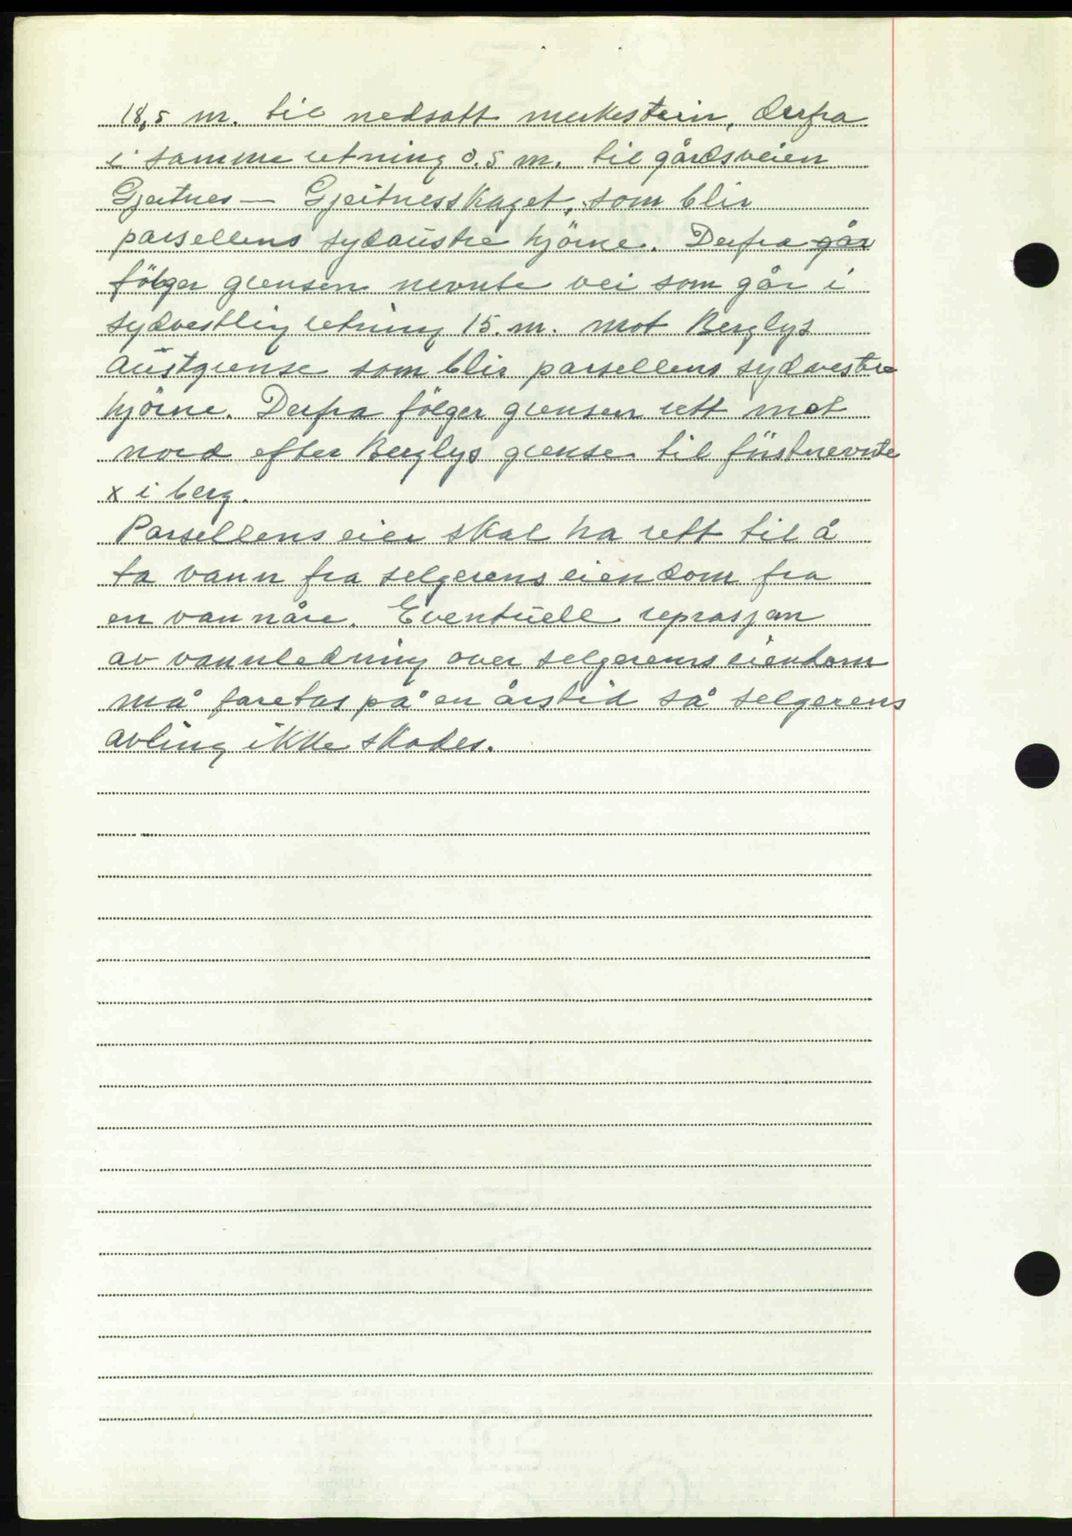 18,5 m. til nedsatt merkestein, derfra
i samme retning 0.5 m. til gårdsveien
Gjeitnes — Gjeitnesskaget, som blir
parsellens sydaustre hjörne. Derfra går
fölger grensen nevnte vei som går i
sydvestlig retning 15. m. mot Berglys
austgrense som blir parsellens sydvestre
hjörne. Derfra fölger grensen rett mot
nord efter Berglys grense til fürstnevnte
x i berg.
Parsellens eier skal ha rett til å
ta vann fra selgerens eiendom fra
en vannåre. Eventuell reprasjon
av vannledning over selgerens eiendom
må foretas på en årstid så selgerens
avling ikke skades.